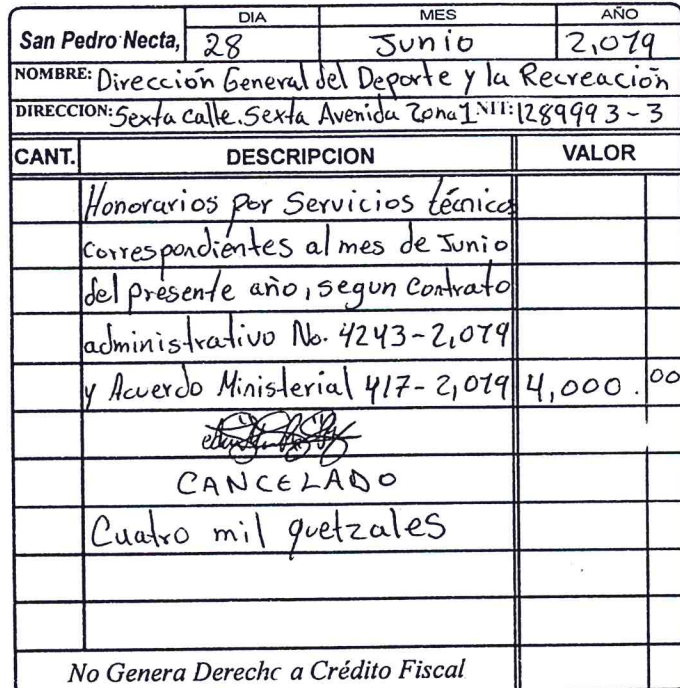 DIA MES AÑO
San Pedro Necta, 28 Junio 2,019
NOMBRE: Dirección General del Deporte y la Recreación
DIRECCION: Sexta calle. Sexta Avenida Zona 1 NIT: 1289993-3
CANT. DESCRIPCION VALOR
Honorarios por Servicios técnicos
correspondientes al mes de Junio
del presente año, segun Contrato
administrativo No. 4243-2,019
y Acuerdo Ministerial 417-2,019 4,000.00
CANCELADO
Cuatro mil quetzales
No Genera Derecho a Crédito Fiscal